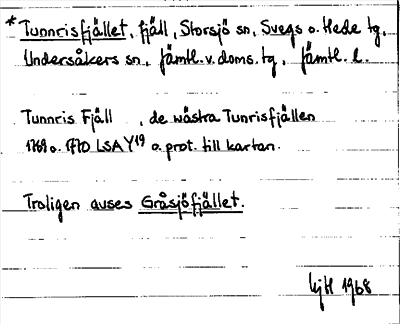 * Tunnrisfjället, fjäll, Storsjö sn, Svegs o. Hede tg,
Undersåkers sn, Jämtl. v. doms. tg, Jämtl. l.
Tunnris Fjäll , de wästra Tunrisfjällen
1769 o. 1770 LSA Y19 a. prot. till kartan.
Troligen avses Gråsjöfjället.
1968